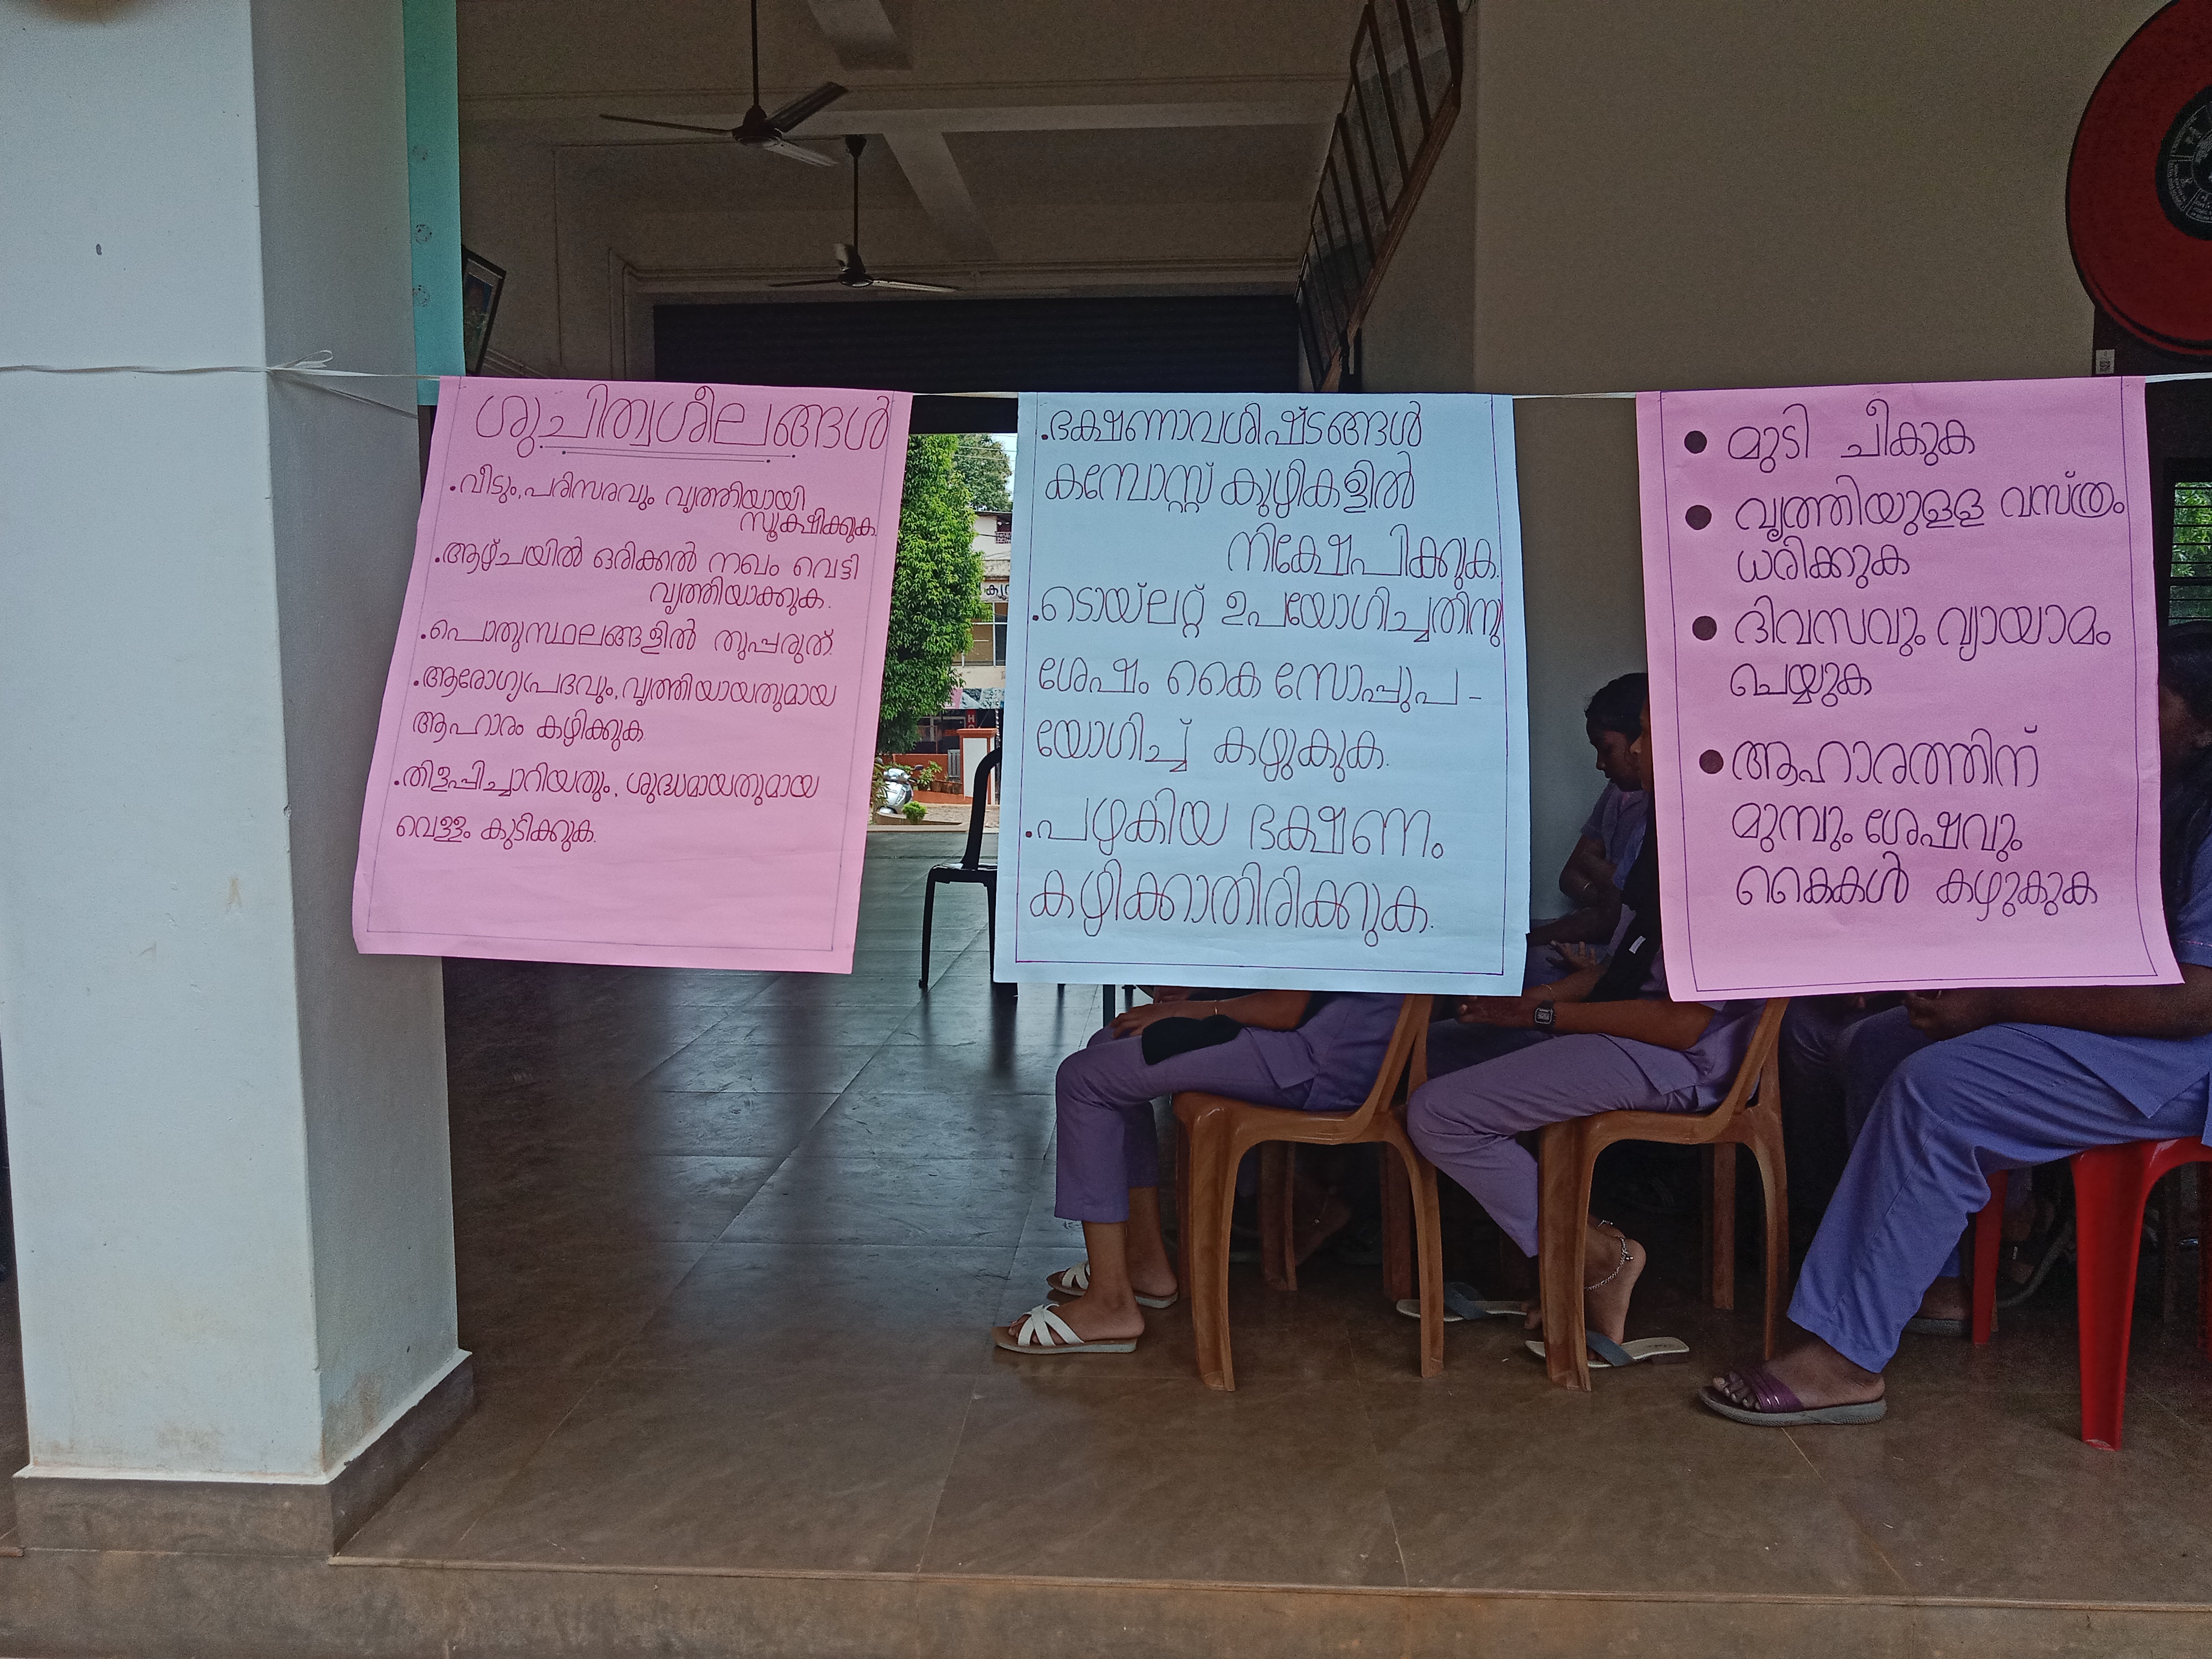 ശുചിത്വശീലങ്ങൾ
.വീടും,പരിസരവും വൃത്തിയായി
സൂക്ഷിക്കുക.
.ആഴ്ചയിൽ ഒരിക്കൽ നഖം വെട്ടി
വൃത്തിയാക്കുക.
.പൊതുസ്ഥലങ്ങളിൽ തുപ്പരുത്.
.ആരോഗ്യപ്രദവും,വൃത്തിയായതുമായ
ആഹാരം കഴിക്കുക
.തിളപ്പിച്ചാറിയതും, ശുദ്ധമായതുമായ
വെള്ളം കുടിക്കുക.
.ഭക്ഷണാവശിഷ്ടങ്ങൾ
കമ്പോസ്റ്റ് കുഴികളിൽ
നിക്ഷേപിക്കുക.
.ടൊയ്ലറ്റ് ഉപയോഗിച്ചതിനു
ശേഷം കൈ സോപ്പുപ-
യോഗിച്ച് കഴുകുക.
.പഴകിയ ഭക്ഷണം
കഴിക്കാതിരിക്കുക.
● മുടി ചീകുക
● വൃത്തിയുളള വസ്ത്രം
ധരിക്കുക
● ദിവസവും വ്യായാമം
ചെയ്യുക
● ആഹാരത്തിന്
മുമ്പും ശേഷവും
കൈകൾ കഴുകുക